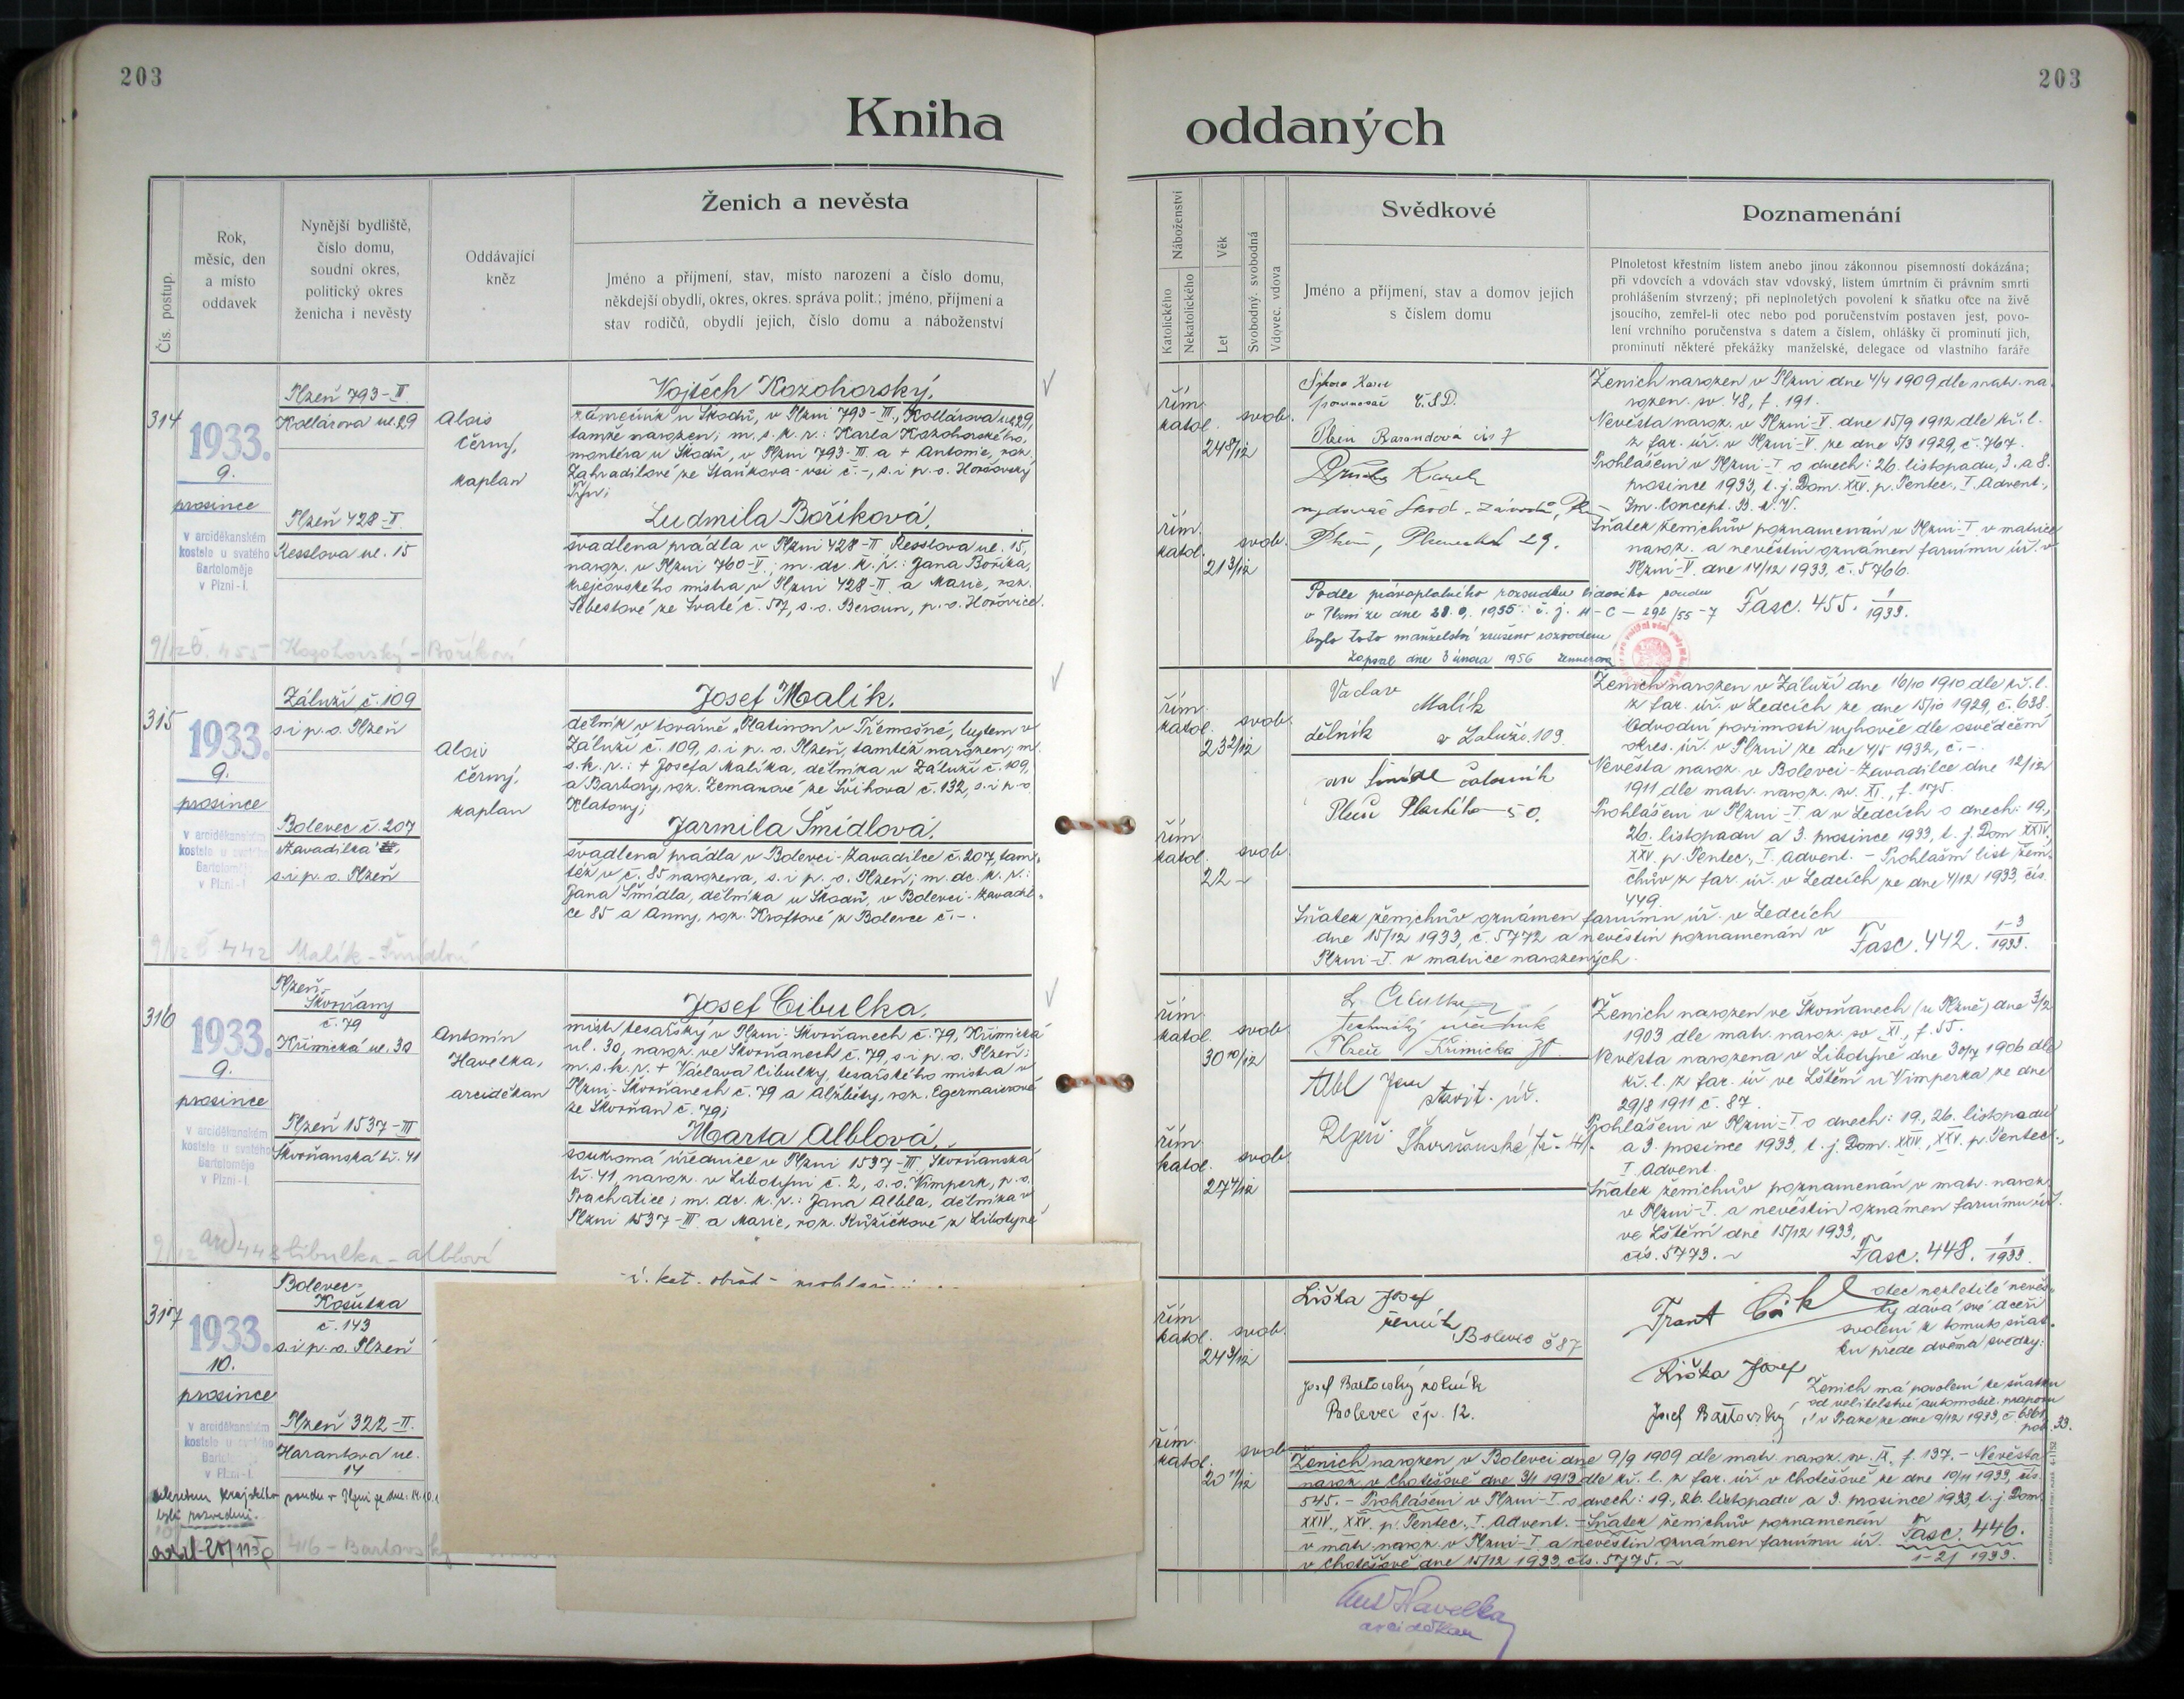 203
203
Kniha
oddaných
Čís. postup.
Rok,
měsíc, den
a místo
oddavek
Nynější bydliště,
číslo domu,
soudní okres,
politický okres
ženicha i nevěsty
Oddávající
kněz
Ženich a nevěsta
Jméno a příjmení, stav, místo narození a číslo domu,
někdejší obydlí, okres, okres. správa polit.; jméno, příjmení a
stav rodičů, obydlí jejich, číslo domu a náboženství
Náboženství
Katolického
Nekatolického
Věk
Let
Svobodný, svobodná
Vdovec, vdova
Svědkové
Jméno a příjmení, stav a domov jejich
s číslem domu
Poznamenání
Plnoletost křestním listem anebo jinou zákonnou písemností dokázána;
při vdovcích a vdovách stav vdovský, listem úmrtním či právním smrti
prohlášením stvrzený; při neplnoletých povolení k sňatku otce na živě
jsoucího, zemřel-li otec nebo pod poručenstvím postaven jest, povo-
lení vrchního poručenstva s datem a číslem, ohlášky či prominutí jich,
prominutí některé překážky manželské, delegace od vlastního faráře
314
1933.
9.
prosince
v arciděkanském
kostele u svatého
Bartoloměje
v Plzni-I.
Plzeň 793-III
Kollárova ul. 29
Plzeň 428-II.
Resslova ul. 15
Alois
Černý,
kaplan
Vojtěch Kozohorský,
zámečník u Škodů, v Plzni 793-III., Kollárova ul. 29,
tamže narozen; m. s. k. r.: Karla Kozohorského,
montéra u Škodů, v Plzni 793-III a + Antonie, roz.
Zahradilové ze Staňkova-vsi č. -, s. i p. o. Horšovský
Týn;
Ludmila Boříková,
švadlena prádla v Plzni 428-II Resslova ul. 15,
naroz. v Plzni 760-V.; m. dc. k. r.: Jana Boříka,
krejčovského mistra v Plzni 428-II a Marie, roz.
Šebestové ze Svaté č. 57, s. o. Beroun, p. o. Hořovice.
9/12 č. 455 Kozohorský - Boříková
řím.
katol.
svob.
24 8/12
řím.
katol.
svob.
21 3/12
Karel
Č.S.D.
Karel
Plzeň, 29.
Podle právoplatného rozsudku lidového soudu
v Plzni ze dne 28. 9. 1955 č. j. 4-C-292/55-7
bylo toto manželství zrušeno rozvodem
Zapsal dne 3 února 1956
Ženich narozen v Plzni dne 4/4 1909 dle matr. na-
rozen. sv. 48, f. 191.
Nevěsta naroz. v Plzni-V. dne 15/9 1912 dle kř. l.
z far. úř. v Plzni-V. ze dne 5/3 1929, č. 767.
Prohlášení v Plzni-I o dnech: 26. listopadu, 3. a 8.
prosince 1933, t. j. Dom. XXV. p. Pentec., I. Advent.,
Im. Concept. B. V.
Sňatek ženichův poznamenán v Plzni-I v matrice
naroz. a nevěstin oznámen farnímu úř. v
Plzni-V. dne 14/12 1933, č. 5766.
Fasc. 455. 1/1933.
315
1933.
9.
prosince
v arciděkanském
kostele u svatého
Bartoloměje
v Plzni-I.
Záluží č. 109
s. i p. o. Plzeň
Bolevec č. 207
Zavadilka
s. i p. o. Plzeň
Alois
Černý,
kaplan
Josef Malík,
dělník v továrně „Platinon" v Třemošné, bytem v
Záluží č. 109, s. i p. o. Plzeň, tamtéž narozen; m.
s. k. r.: + Josefa Malíka, dělníka v Záluží č. 109,
a Barbory, roz. Zemanové ze Švihova č. 132, s. i p. o.
Klatovy;
Jarmila Šmídlová,
švadlena prádla v Bolevci-Zavadilce č. 207, tam-
též v č. 85 narozena, s. i p. o. Plzeň; m. dc. k. r.:
Jana Šmídla, dělníka u Škodů, v Bolevci-Zavadil-
ce 85 a Anny, roz. Kroftové z Bolevce č. -.
9/12 č. 442 Malík - Šmídlová
řím.
katol.
svob.
23 2/12
řím.
katol.
svob.
22 -
Václav
Malík
dělník v Záluží. 109.
Šmídl
50.
Sňatek ženichův oznámen farnímu úř. v Ledcích
dne 15/12 1933, č. 5772 a nevěstin poznamenán v
Plzni-I. v matrice narozených.
Ženich narozen v Záluží dne 16/10 1910 dle kř. l.
z far. úř. v Ledcích ze dne 15/10 1929, č. 638.
Odvodní povinnosti vyhověl dle osvědčení
okres. úř. v Plzni ze dne 4/5 1932, č. -.
Nevěsta naroz. v Bolevci-Zavadilce dne 12/12
1911 dle matr. naroz. sv. XI., f. 175.
Prohlášení v Plzni-I. a v Ledcích o dnech: 19.,
26. listopadu a 3. prosince 1933, t. j. Dom. XXIV.,
XXV. p. Pentec., I. Advent. - Prohlašní list ženi-
chův z far. úř. v Ledcích ze dne 4/12 1933, čís.
449.
Fasc. 442. 1-3/1933.
316
1933.
9.
prosince
v arciděkanském
kostele u svatého
Bartoloměje
v Plzni-I.
Plzeň-
Skvrňany
č. 79
Křimická ul. 30
Plzeň 1537-III
Skvrňanská tř. 41
Antonín
Havelka,
arciděkan
Josef Cibulka,
mistr tesařský v Plzni-Skvrňanech č. 79, Křimická
ul. 30, naroz. ve Skvrňanech č. 79, s. i p. o. Plzeň;
m. s. k. r. + Václava Cibulky, tesařského mistra v
Plzni-Skvrňanech č. 79 a Alžběty, roz. Egermaierové
ze Skvrňan č. 79;
Marta Alblová,
soukromá úřednice v Plzni 1537-III, Skvrňanská
tř. 41, naroz. v Libotyni č. 2, s. o. Vimperk, p. o.
Prachatice; m. dc. k. r.: Jana Albla, dělníka v
Plzni 1537-III a Marie, roz. Růžičkové z Libotyně
9/12 448 Cibulka - Alblová
řím.
katol.
svob.
30 10/12
řím.
katol.
svob.
27 4/12
Cibulka
technický úředník
Plzeň Křimická 30.
Albl Jan
stavit. úř.
Plzeň Skvrňanská tř. 41.
Ženich narozen ve Skvrňanech (u Plzně) dne 3/2
1903 dle matr. naroz. sv. XI., f. 55.
Nevěsta narozena v Libotyně dne 30/7 1906 dle
kř. l. z far. úř. ve Lštění u Vimperka ze dne
29/8 1911 č. 87.
Prohlášení v Plzni-I o dnech: 19., 26. listopadu
a 3. prosince 1933, t. j. Dom. XXIV., XXV. p. Pentec.,
I. Advent.
Sňatek ženichův poznamenán v matr. naroz.
v Plzni-I. a nevěstin oznámen farnímu úř.
ve Lštění dne 15/12 1933,
čís. 5773.
Fasc. 448. 1/1933
317
1933.
10.
prosince
v arciděkanském
kostele u svatého
v Plzni-I.
Bolevec-
Košutka
č. 143
s. i p. o. Plzeň
Plzeň 322-II.
Harantova ul.
14
krajského soudu v Plzni ze dne
byli rozvedeni.
416 - Bartovský
řím.
katol.
svob.
24 3/12
řím.
katol.
svob.
20 11/12
Liška Josef
řezník
Bolevec č 87
Josef Bartovský rolník
Bolevec čp. 12.
Frant
otec nezletilé nevěs-
ty dává své dceři
svolení k tomuto sňat-
ku přede dvěma svědky:
Liška Josef
Josef Bartovský
Ženich má povolení ke sňatku
od velitelství automobil. praporu
v Praze ze dne 9/12 1933, č.
Ženich narozen v Bolevci dne 9/9 1909 dle matr. naroz. sv. IX., f. 137. - Nevěsta
naroz. v Chotěšově dne 3/1 1913 dle kř. l. z far. úř. v Chotěšově ze dne 10/11 1933, čís.
545. - Prohlášení v Plzni-I. o dnech: 19., 26. listopadu a 3. prosince 1933, t. j. Dom.
XXIV., XXV. p. Pentec., I. Advent. - Sňatek ženichův poznamenán
v matr. naroz. v Plzni-I a nevěstin oznámen farnímu úř.
v Chotěšově dne 15/12 1933 čís. 5775.
Fasc. 446.
1-21 1933.
Ant Havelka
arciděkan